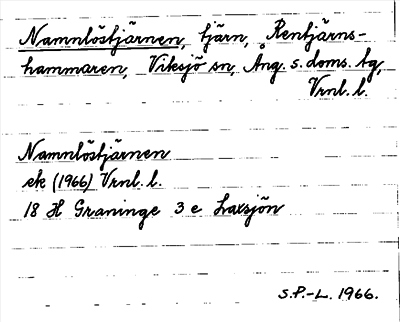 Namnlöstjärnen, tjärn, Rentjärns-
hammaren, Viksjö sn, Ång. s. doms. tg,
Vrnl. l.
Namnlöstjärnen
ek (1966) Vrnl. l.
18 H Graninge 3 e Laxsjön
S.P.-L. 1966.